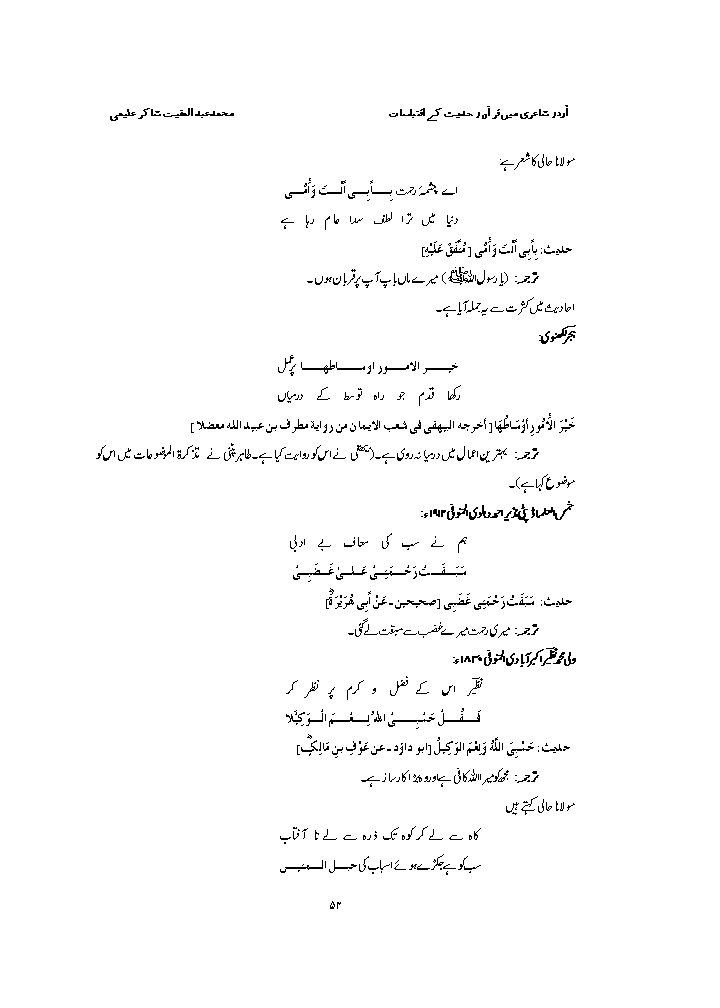 اُردو شاعری میں قرآن و حدیث کے اقتباسات
محمد عبد المقیت شاکر علیمی
مولانا حالی کا شعر ہے:
اے چشمۂ رحمت بِأَبِی أَنْتَ وَأُمِّی
دنیا میں ترا لطف سدا عام رہا ہے
حدیث: بِأَبِی أَنْتَ وَأُمِّی [مُتَّفَقٌ عَلَیْهِ]
ترجمہ: (یا رسول اللہ ﷺ) میرے ماں باپ آپ پر قربان ہوں۔
احادیث میں کثرت سے یہ جملہ آیا ہے۔
ہجر لکھنوی:
خیر الامور اوساطہا پر عمل
رکھا قدم جو راہ توسط کے درمیاں
خَیْرُ الْأُمُورِ أَوْسَاطُهَا [أخرجه البیهقی فی شعب الایمان من روایة مطرف بن عبید الله معضلا]
ترجمہ: بہترین اعمال میں درمیانہ روی ہے۔(بیہقی نے اس کو روایت کیا ہے۔ طاہر پٹنی نے تذکرۃ الموضوعات میں اس کو
موضوع کہا ہے)۔
شمس العلما ڈپٹی نذیر احمد دہلوی المتوفیٰ ۱۹۱۲ء:
ہم نے سب کی معاف بے ادبی
سَبَقَتْ رَحْمَتِیْ عَلیٰ غَضَبِیْ
حدیث: سَبَقَتْ رَحْمَتِی غَضَبِی [صحیحین۔عَنْ أَبِی هُرَیْرَةَؓ]
ترجمہ: میری رحمت میرے غضب سے سبقت لے گئی۔
ولی محمد نظیر اکبر آبادی المتوفیٰ ۱۸۳۰ء:
نظیر اس کے فضل و کرم پر نظر کر
فَقُلْ حَسْبِیَ اللهُ نِعْمَ الْوَکِیْلا
حدیث: حَسْبِیَ اللَّهُ وَنِعْمَ الْوَکِیلُ [ابو داوٗد۔عن عَوْفِ بنِ مَالِکٍؓ]
ترجمہ: مجھ کو میرا اللہ کافی ہے اور وہ بڑا کارساز ہے۔
مولانا حالی کہتے ہیں
کاہ سے لے کر کوہ تک ذرہ سے لے تا آفتاب
سب کو ہے جکڑے ہوئے اسباب کی حبل المتیں
۵۲